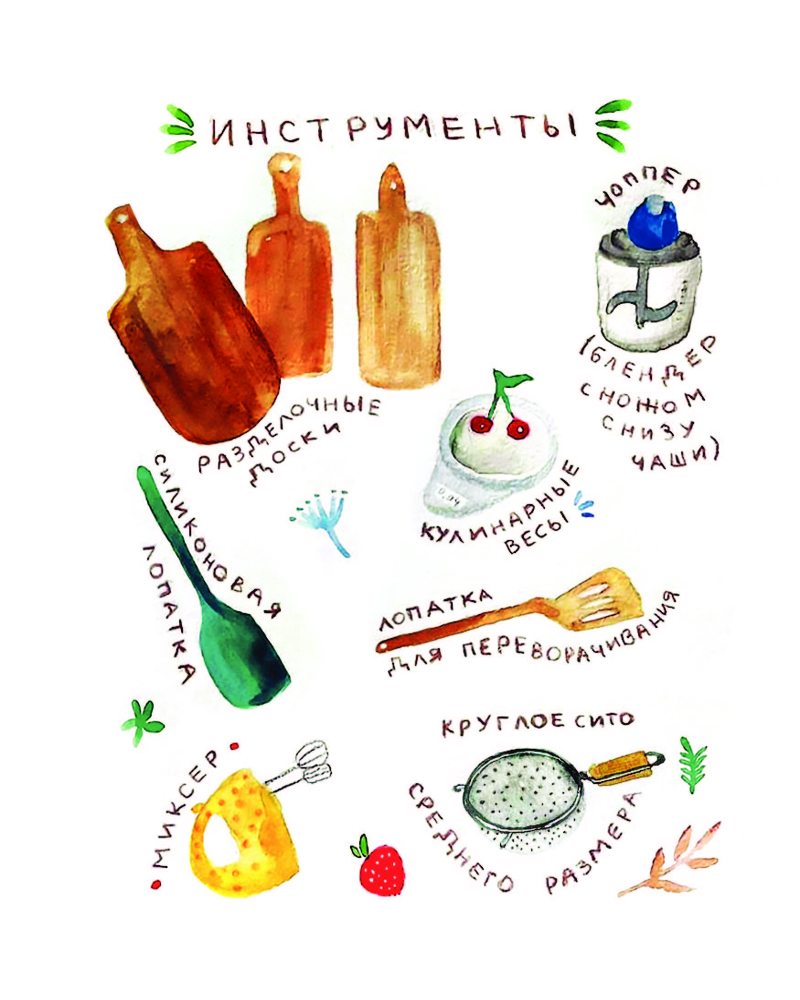 ИНСТРУМЕНТЫ
ЧОППЕР
(БЛЕНДЕР
С НОЖОМ
СНИЗУ
ЧАШИ)
РАЗДЕЛОЧНЫЕ
ДОСКИ
0,04
КУЛИНАРНЫЕ
ВЕСЫ
СИЛИКОНОВАЯ
ЛОПАТКА
ЛОПАТКА
ДЛЯ ПЕРЕВОРАЧИВАНИЯ
КРУГЛОЕ СИТО
СРЕДНЕГО РАЗМЕРА
МИКСЕР